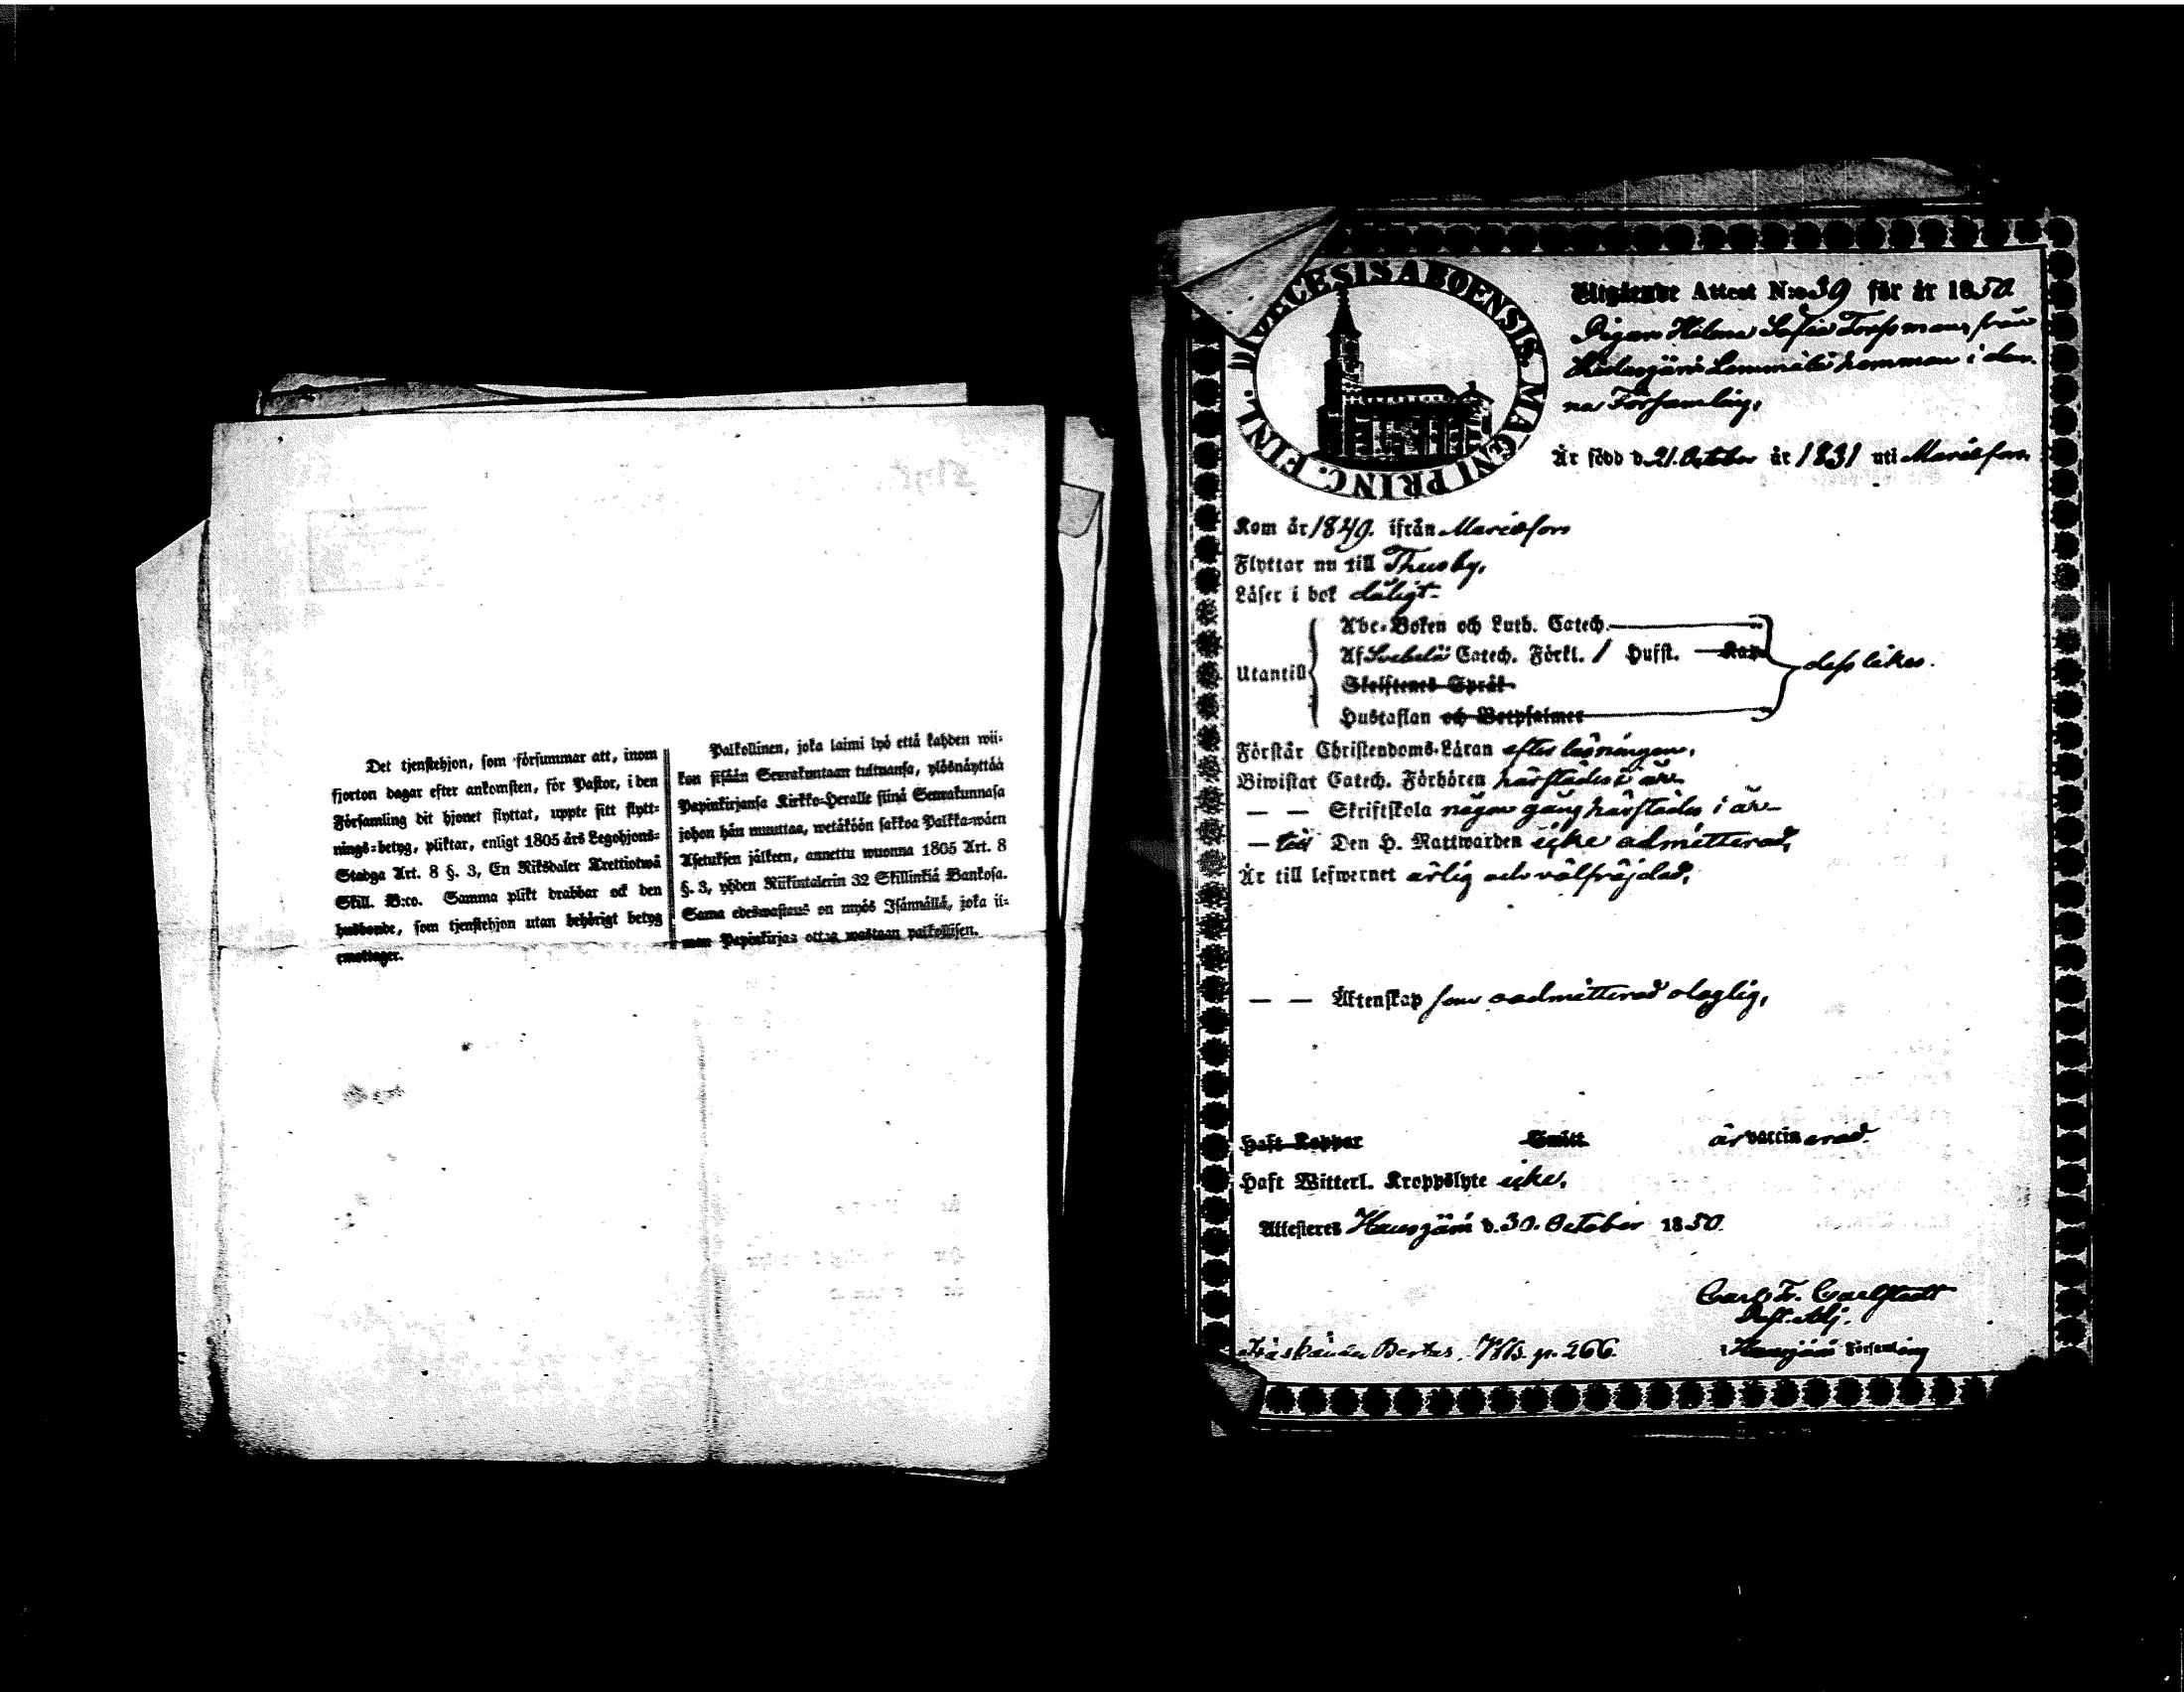 Det tjenstehjon, som försummar att, inom
fjorton dagar efter ankomsten, för Pastor, i den
Församling dit hjonet flyttat, uppte sitt flytt-
nings=betyg, pliktar, enligt 1805 års Legohjons=
Stadga Art. 8 §. 3, En Riksdaler Trettiotwå
Skill. B:co. Samma plikt drabbar ock den
husbonde, som tjenstehjon utan behörigt betyg
emottager.
Palkollinen, joka laimi lyö että kahden wii-
kon sisään Seurakuntaan tultuansa, ylösnäyttää
Papinkirjansa Kirkko=Heralle siinä Seurakunnasa
johon hän muuttaa, wetäköön sakkoa Palkka=wäen
Asetuksen jälkeen, annettu wuonna 1805 Art. 8
§. 3, yhden Riikintalerin 32 Skillinkiä Bankosa.
Sama edeswastaus on myös Isännällä, joka il=
man Papinkirjaa ottaa wastaan palkollisen.
DIOECESIS ABOENSIS. MAGNI PRINC. FINL.
Utgående Attest N:o 39 för år 1850
Pigan Helena Sofia Torssman, från
Hausjärvi Lemmilä komman i den-
na Församling,
Är född d. 21. October år 1831 uti Mariefors
Kom år 1849. ifrån Mariefors
Flyttar nu till Thusby,
Läser i bok dåligt.
Utantill
Abc=Boken och Luth. Catech.
Af Svebelii Catech. Förkl. / Hufst. Kap.
Skriftenes Språk
Hustaflan och Botpsalmer
dess likes.
Förstår Christendoms-Läran efter läsningen,
Biwistat Catech. Förhören härstädes i år
— — Skriftskola någon gång härstädes i år
— till Den H. Nattwarden icke admitterad,
Är till lefwernet ärlig och välfräjdad,
— — Äktenskap som oadmitterad olaglig,
Haft Koppor Smitt är vaccinerad.
Haft Witterl. Kroppslyte icke,
Attesteres Hausjärvi d. 30. October 1850.
Carl Fr. Carlstedt
Past. Adj.
i Hausjärvi Församling
Träskända Bertas. p. 266.